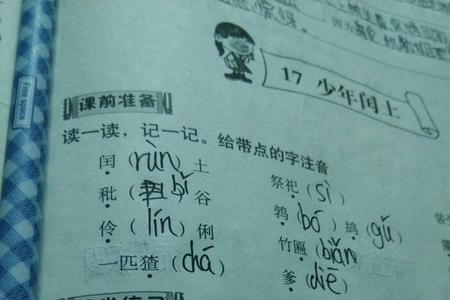 17 少年闰土
课前准备
读一读，记一记。给带点的字注音
闰（rùn）土 祭祀（sì）
秕（bǐ）谷 鹁（bó）鸪（gū）
伶（lín）俐 竹匾（biǎn）
一匹猹（chá） 爹（diē）
Free space